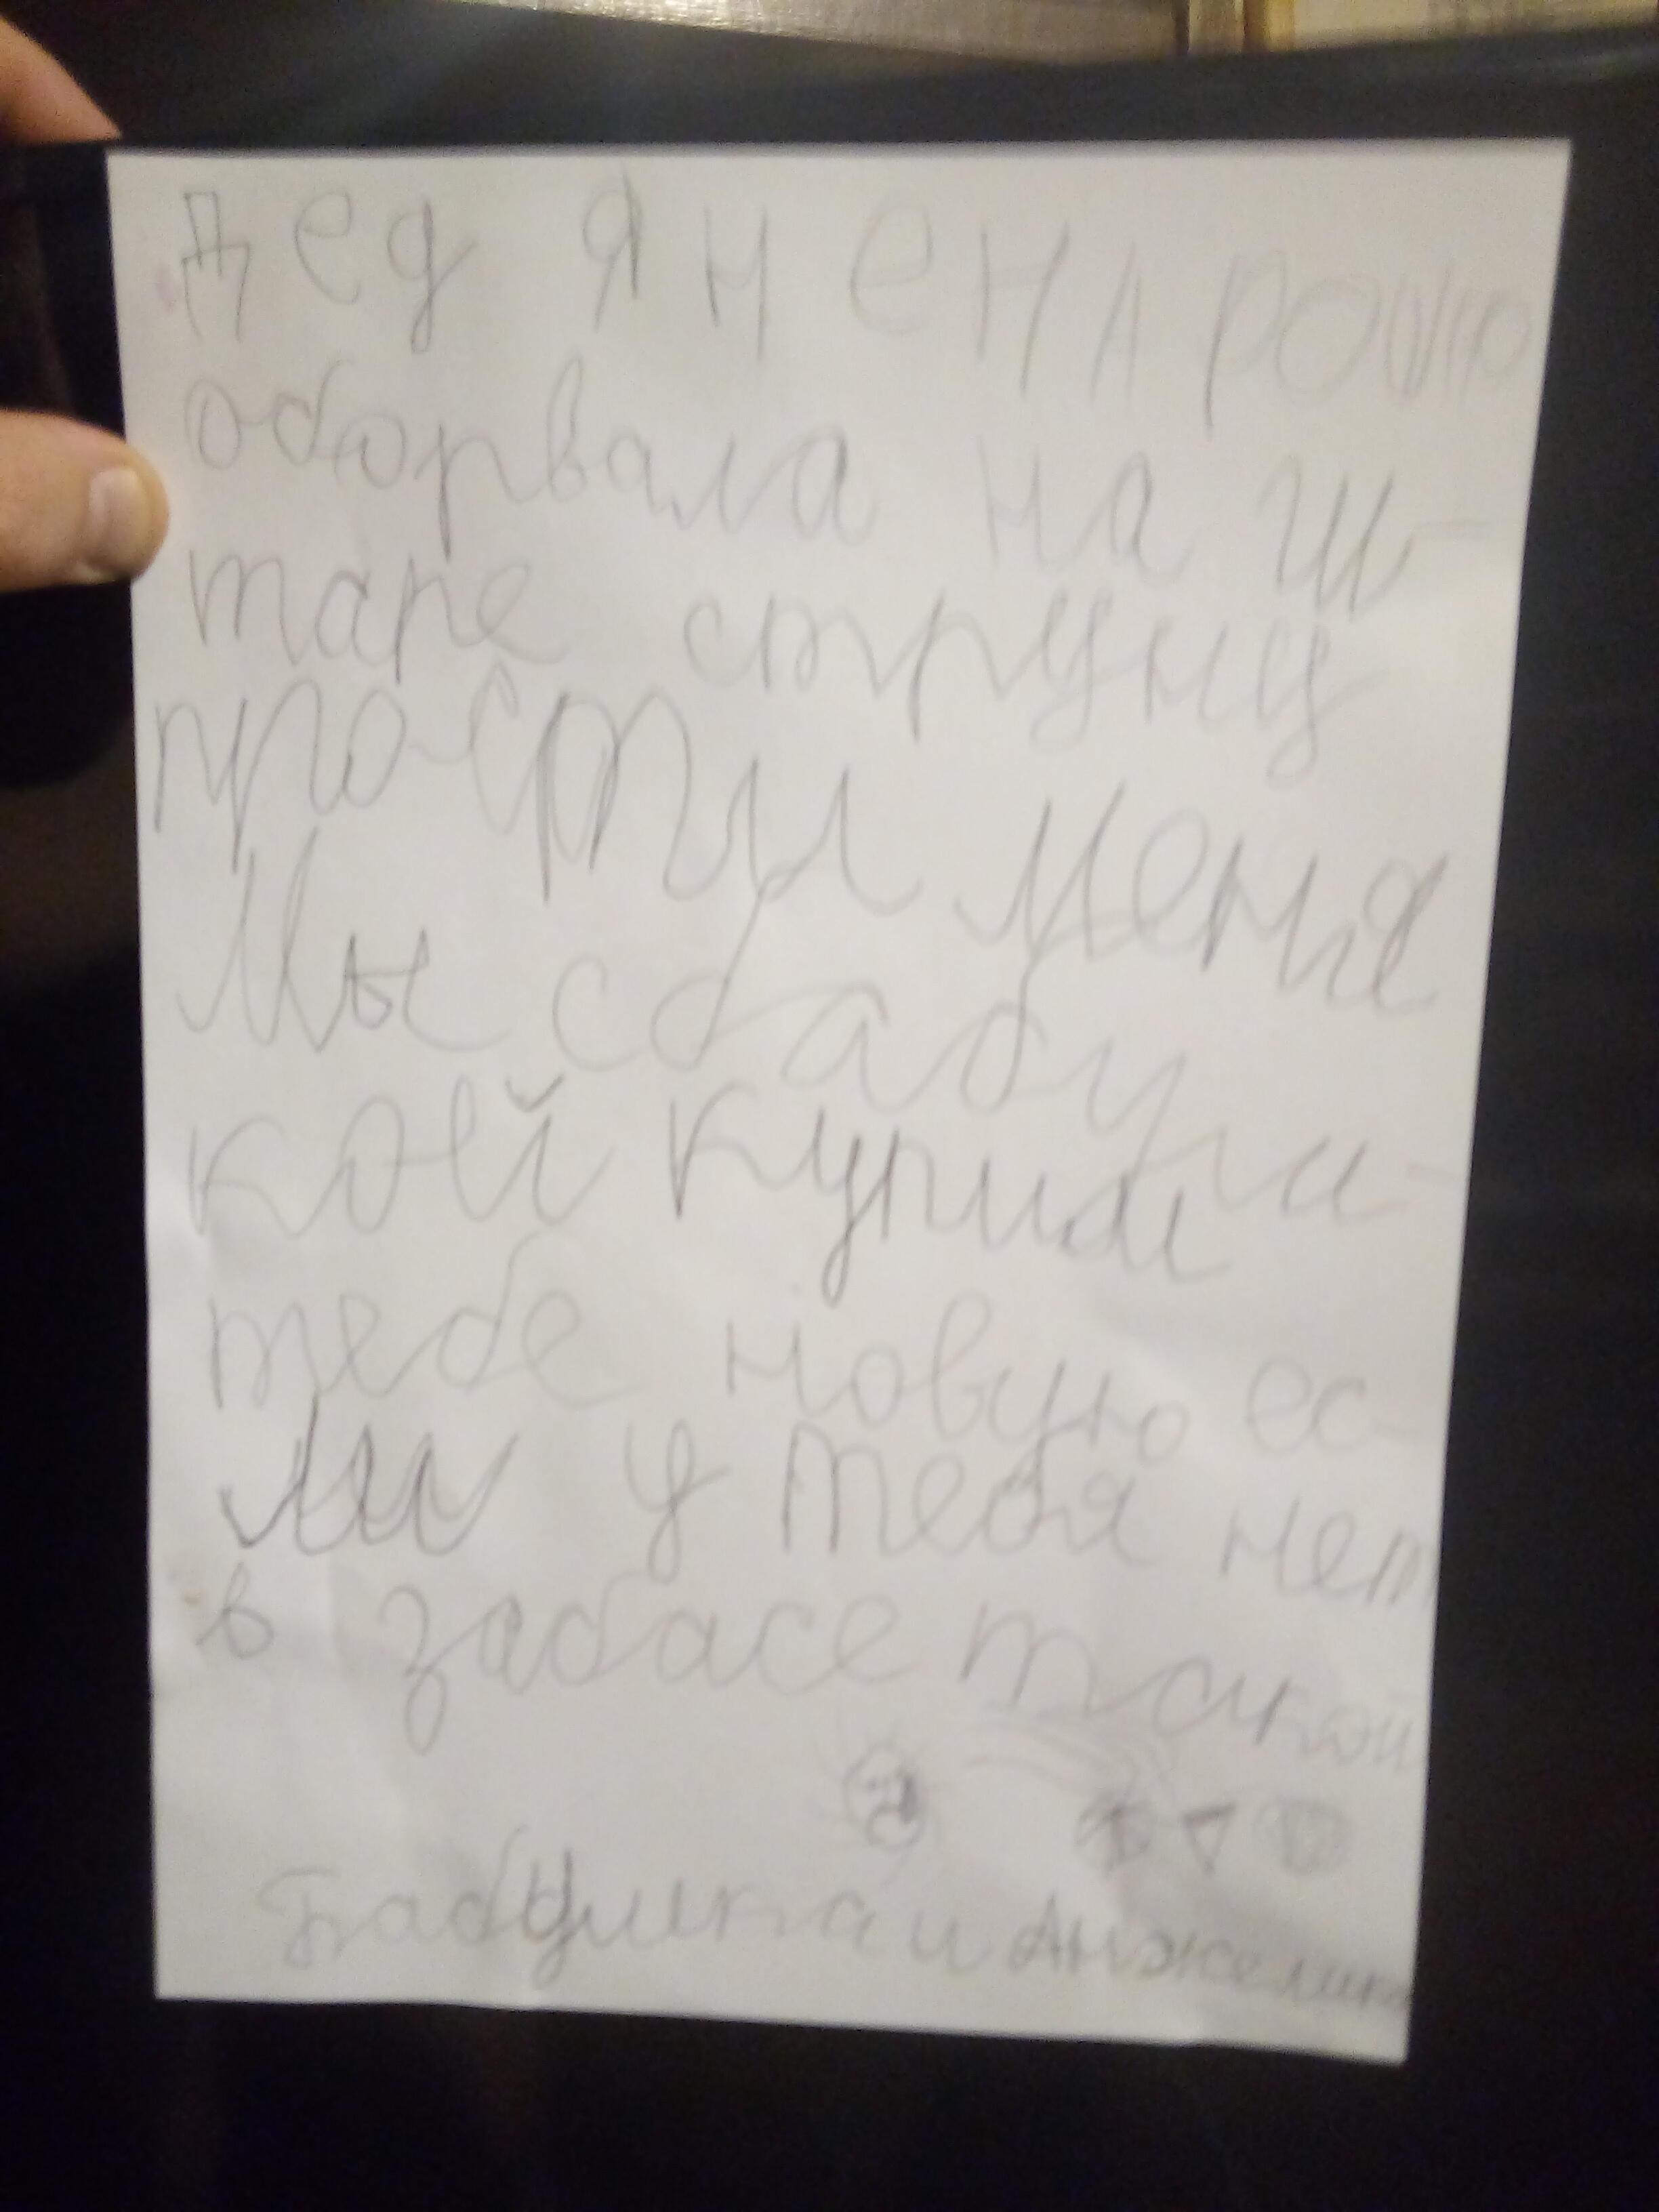 Дед я ненарошно
оборвала на ги-
таре струну
прости меня
Мы с бабуш-
кой купим
тебе новую ес-
ли у тебя нет
в забасе такой
Бабушка и Анжелика